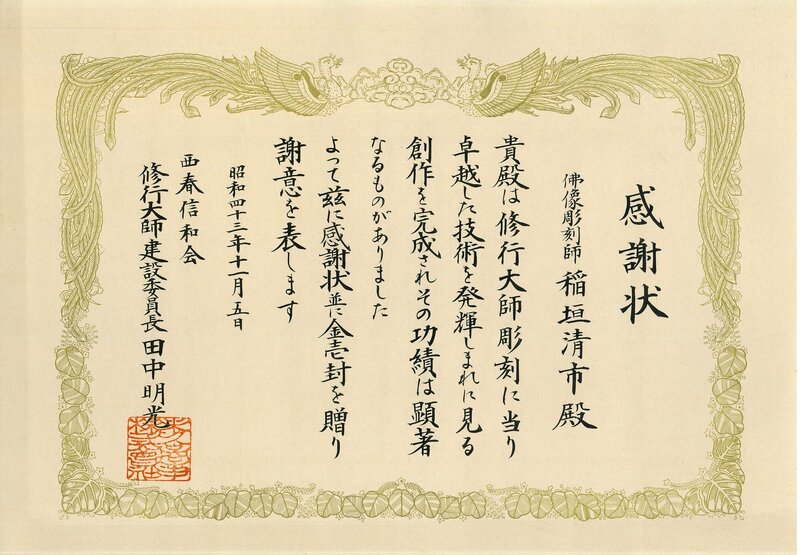 感謝状
佛像彫刻師 稲垣清市殿
貴殿は修行大師彫刻に当り
卓越した技術を発輝しまれに見る
創作を完成されその功績は顕著
なるものがありました
よって茲に感謝状並に金壱封を贈り
謝意を表します
昭和四十三年十一月五日
西春信和会
修行大師建設委員長 田中明光